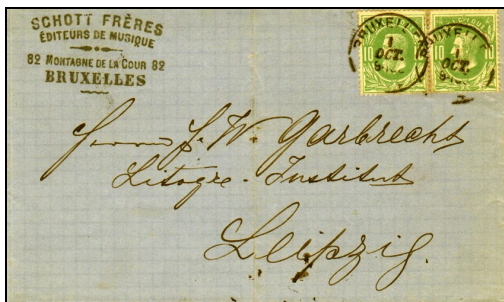 SCHOTT FRÈRES
ÉDITEURS DE MUSIQUE
82 MONTAGNE DE LA COUR 82
BRUXELLES
BRUXELLES
1
OCT.
10 10
BRUXELLES
1
OCT.
10 10
Herrn F. W. Garbrecht
Litogr. Institut
Leipzig.